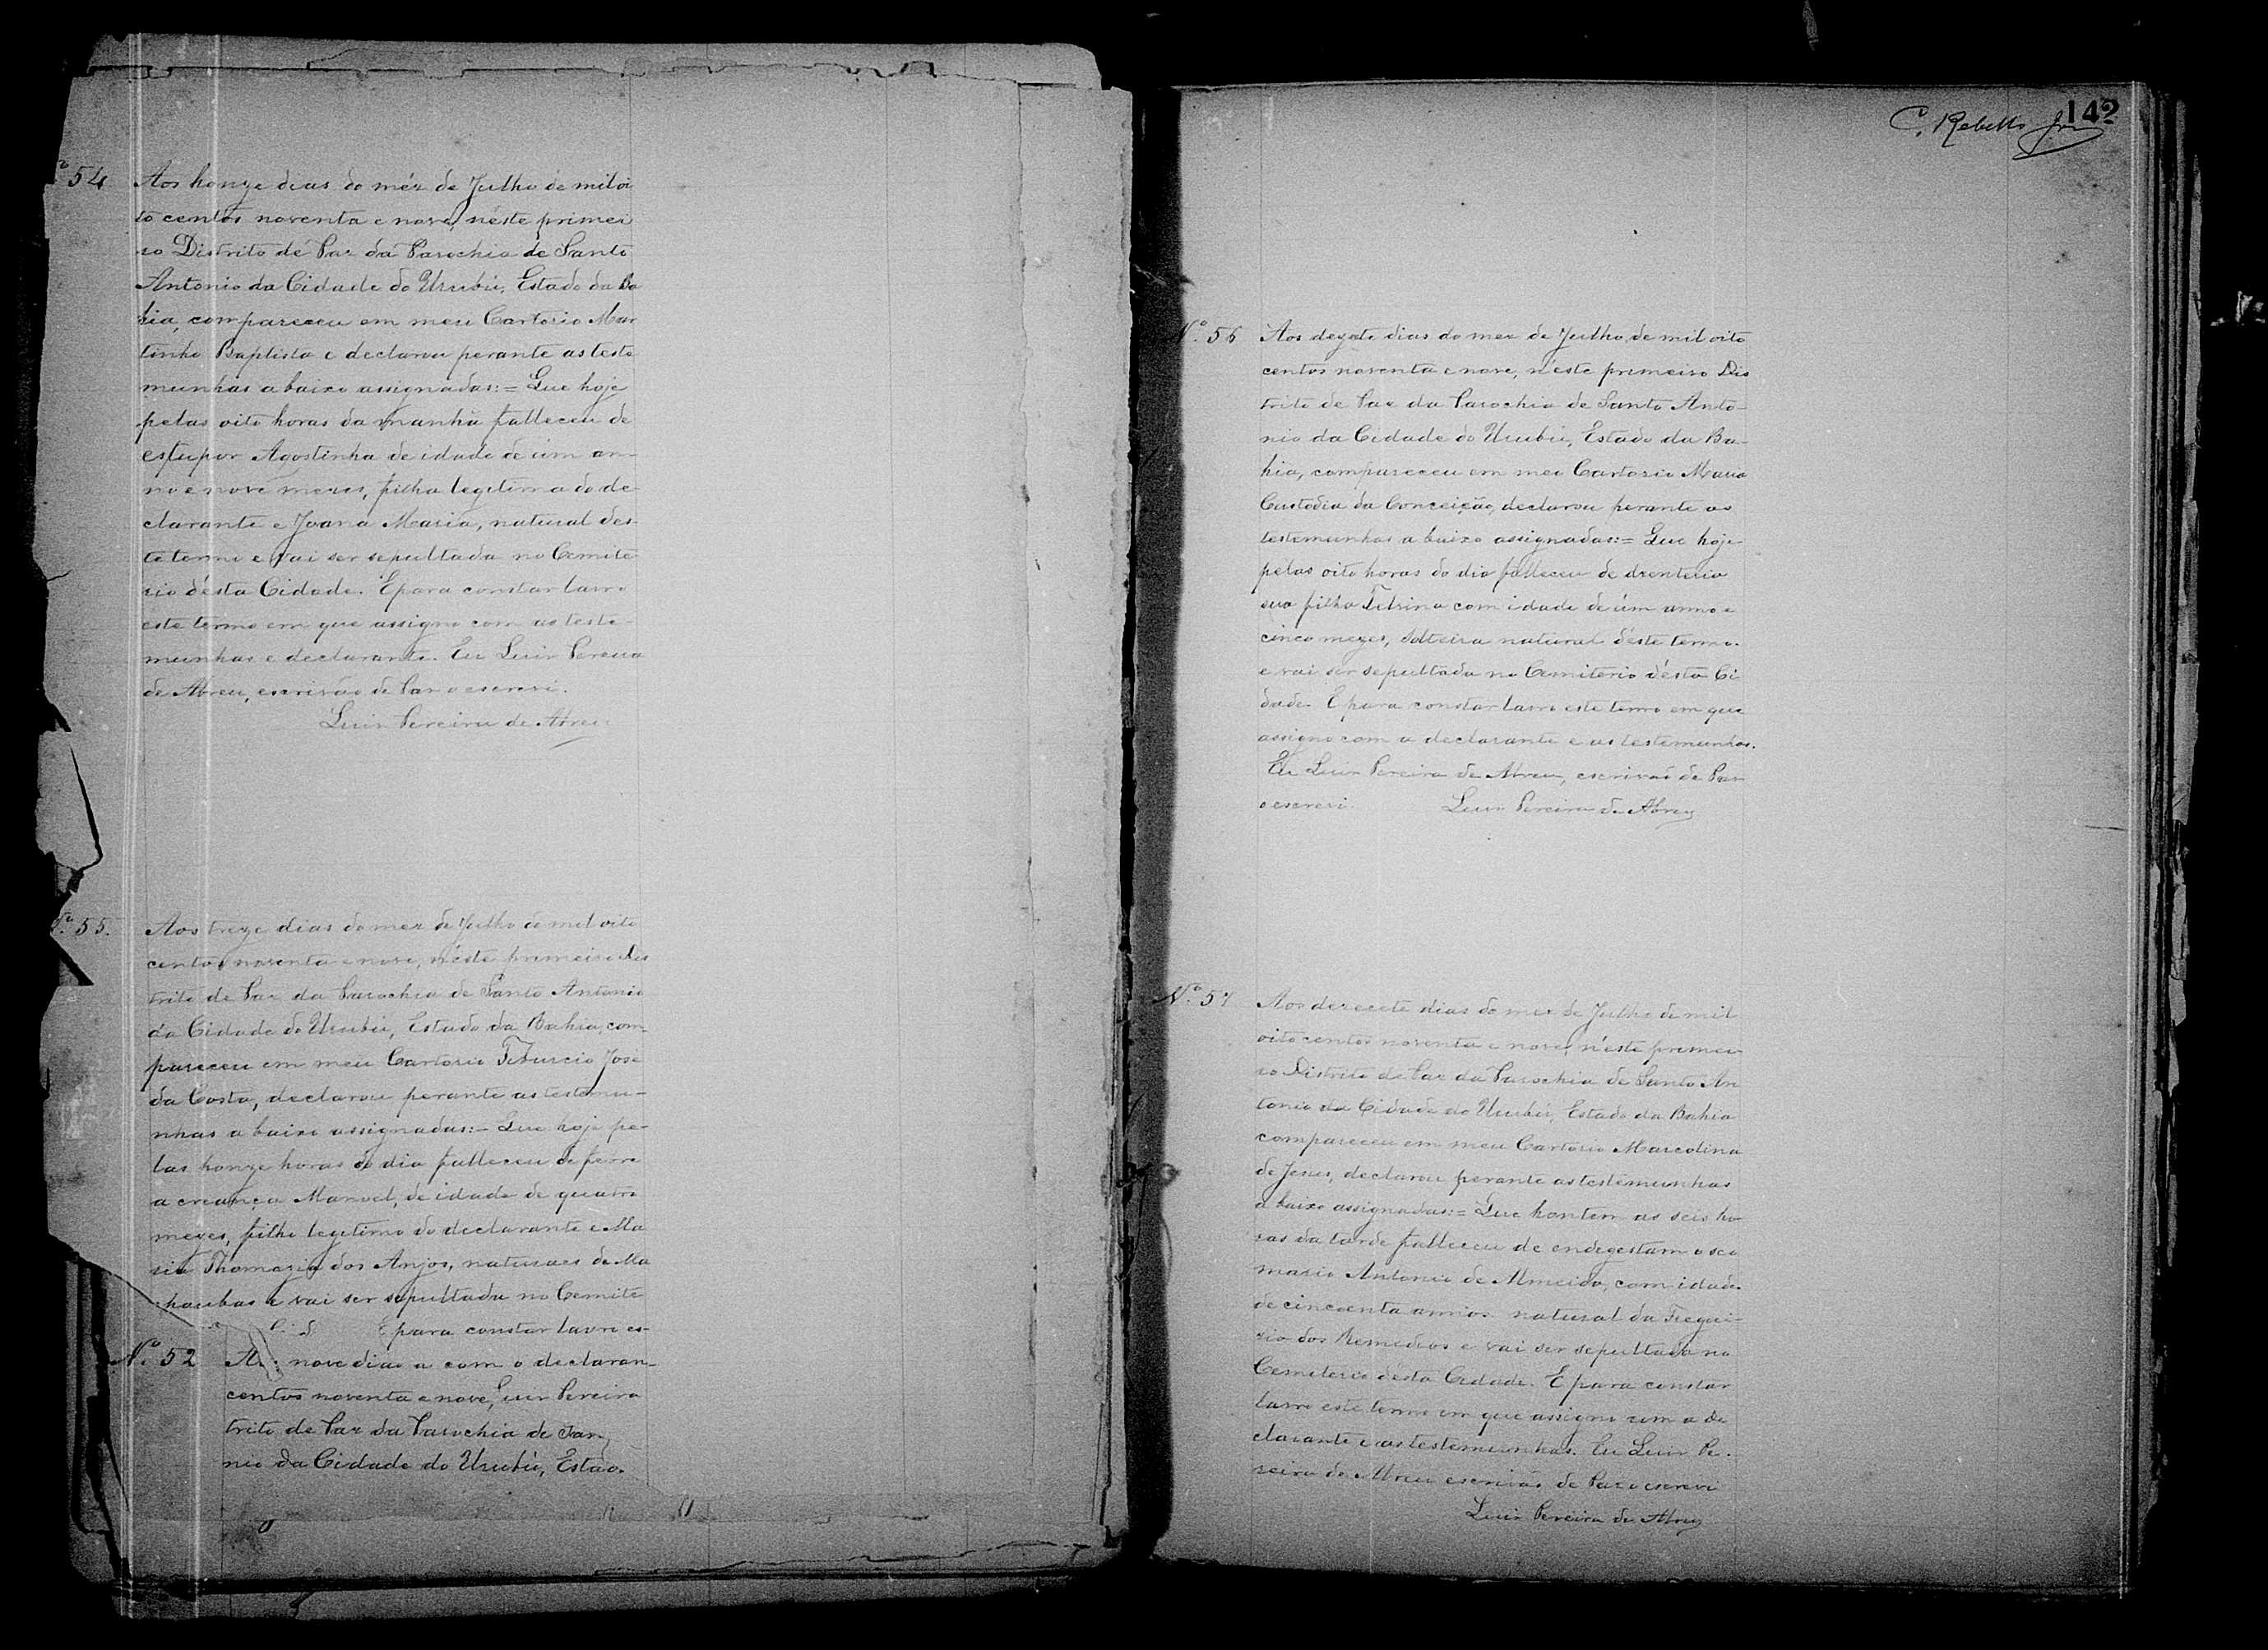 Nº 54 Aos honze dias do méz de Julho de mil oi
to centos noventa e nove, néste primei
ro Distrito de Paz da Parochia de Santo
Antonio da Cidade do Urubú, Estado da Ba
hia, compareceu em meu Cartorio Mar
tinho Baptista e declarou perante as teste
munhas abaixo assignadas:= Que hoje
pelas oito horas da manhã falleceu de
estupor Agostinha de idade de úm an-
no e nove mezes, filha legitima do de-
clarante e Joana Maria, natural des-
te termo e vai ser sepultada no Cemite
rio désta Cidade. E para constar lavro
este termo em que assigno com as teste-
munhas e declarante. Eu Luis Pereira
de Abreu, escrivão de Paz o escrevi.
Luis Pereira de Abreu
Nº 55. Aos treze dias do mez de Julho de mil oito
centos noventa e nove, néste primeiro Dis
trito de Paz da Parochia de Santo Antonio
da Cidade do Urubú, Estado da Bahia, com-
pareceu em meu Cartorio Tiburcio José
da Costa, declarou perante as testemu-
nhas abaixo assignadas:- Que hoje pe-
las honze horas do dia falleceu de
a creança Manoel, de idade de quatro
mezes, filho legitimo do declarante e Ma
ria Thomazia dos Anjos, naturaes de Ma
chaubas e vai ser sepultada no Cemite
E para constar lavro es-
a com o declaran-
Luis Pereira
Nº 52 nove dias
centos noventa e nove,
trito de Paz da Parochia de San
nio da Cidade do Urubú, Estad
142
C. Rebello Jor
Nº 56 Aos dezete dias do mez de Julho de mil oito
centos noventa e nove, n'éste primeiro Dis
trito de Paz da Parochia de Santo Anto-
nio da Cidade do Urubú, Estado da Ba-
hia, compareceu em meo Cartorio Maria
Custodia da Conceição, declarou perante as
testemunhas abaixo assignadas:= Que hoje
pelas oito horas do dia falleceu de
sua filha com idade de úm anno e
cinco mezes, solteira natural déste termo.
e vai ser sepultada no Cemiterio désta Ci
dade. E para constar lavro este termo em que
assigno com a declarante e as testemunhas.
Eu Luis Pereira de Abreu, escrivão de Paz
o escrevi. Luis Pereira de Abreu
Nº 57 Aos dezecete dias do mez de Julho de mil
oito centos noventa e nove, n'éste primei
ro Distrito de Paz da Parochia de Santo An
tonio da Cidade do Urubú, Estado da Bahia
compareceu em meu Cartorio Marcolina
de Jesus, declarou perante as testemunhas
abaixo assignadas:= Que hontem as seis ho
ras da tarde falleceu de endegestam o seo
marido Antonio de Almeida, com idade
de cincoenta annos natural da Fregui-
zia dos Remedios e vai ser sepultado no
Cemiterio désta Cidade. E para constar
lavro este termo em que assigno com a de
clarante e as testemunhas. Eu Luis Pe-
reira de Abreu escrivão de Paz o escrevi
Luis Pereira de Abreu